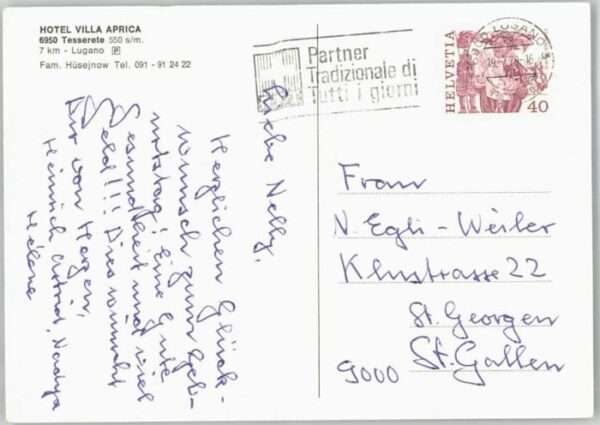 HOTEL VILLA APRICA
6950 Tesserete 550 s/m.
7 km - Lugano P
Fam. Hüsejnow Tel. 091 - 91 24 22
Partner
Tradizionale di
Tutti i giorni
LUGANO
HELVETIA
40
Liebe Nelly,
Herzlichen Glück-
wunsch zum Geb-
urtstag! Eine Gute
Gesundheit und viel
Geld!!! Dies wünscht
Dir von Herzen,
Heinrich Astrid, Nadya
Helene
Frau
N. Egli-Weiler
Klustrasse 22
St. Georgen
9000 St. Gallen